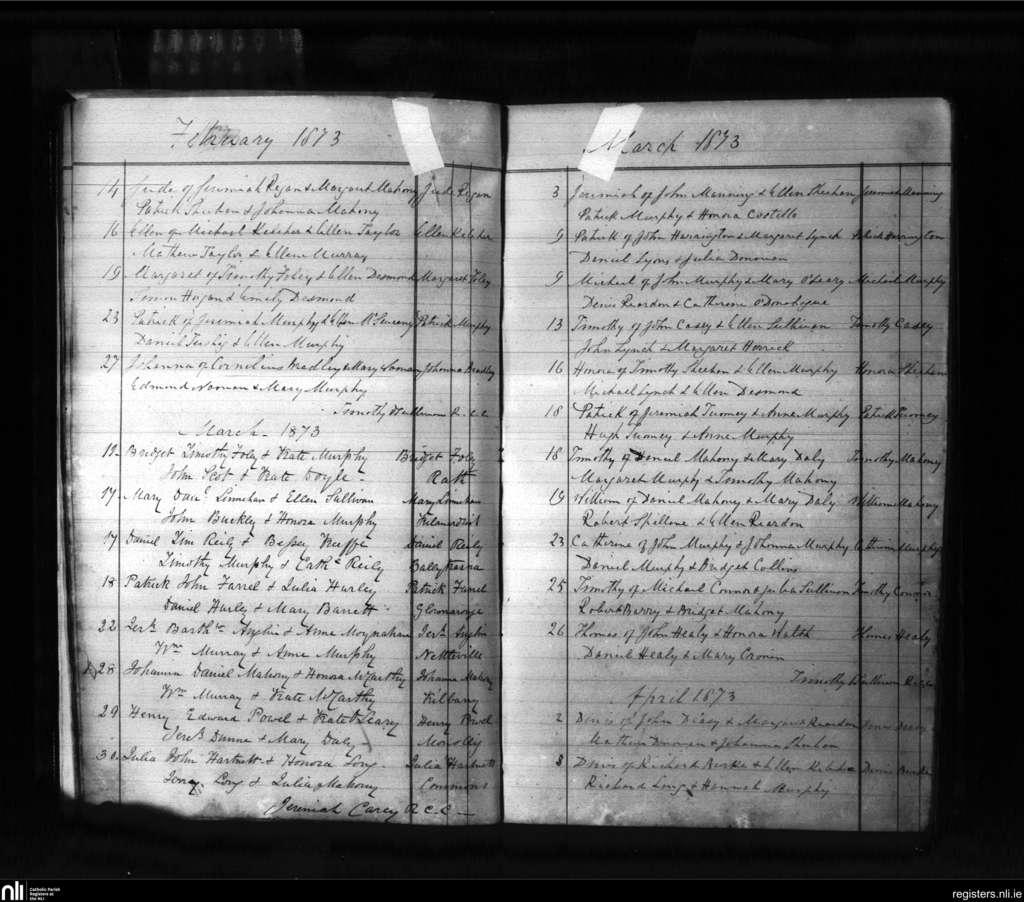 February 1873
14 Jude of Jeremiah Regan & Margaret Mahony Jude Regan
Patrick Sheehan & Johanna Mahony
16 Ellen of Michael Keleher & Ellen Taylor Ellen Keleher
Mathew Taylor & Ellen Murray
19 Margaret of Timothy Foley & Ellen Desmond Margaret Foley
Simon Hogan & Desmond
23 Patrick of Jeremiah Murphy & Ellen Patrick Murphy
Daniel & Ellen Murphy
27 Johanna of Cornelius Bradley & Mary Johanna Bradley
Edmond Noonan & Mary Murphy
Timothy
March - 1873
Bridget Timothy Foley & Kate Murphy Bridget Foley
John Scot & Kate Doyle - Rath
17 Mary Danl Linnihan & Ellen Sullivan Mary Linnihan
John Buckley & Honora Murphy
17 Daniel Tim Reily & Bessie Keeffe Daniel Reily
Timothy Murphy & Cathe Reily
18 Patrick John Farrel & Julia Hurley Patrick Farrel
Daniel Hurley & Mary Barrett
22 Jerh Barthw & Anne Moynahan Jerh
Wm Murray & Anne Murphy Nettleville
28 Johanna Daniel Mahony & Honora McCarthy Johanna Mahony
Wm Murray & Kate McCarthy Kilbarry
29 Henry Edward Powel & Kate O'Leary Henry Powel
Jerh Dunne & Mary Daly
30. Julia John Hartnett & Honora Long - Julia Hartnett
Long & Julia Mahony Commons
Jeremiah Carey R.C.C.
March 1873
3 Jeremiah of John Manning & Ellen Sheehan Jeremiah Manning
Patrick Murphy & Honora Costello
9 Patrick of John Harrington & Margaret Lynch Patrick Harrington
Daniel Lyons & Julia Donovan
9 Michael of John Murphy & Mary O'Leary Michael Murphy
Denis Reardon & Catherine O'Donohgue
13 Timothy of John Casey & Ellen Sullivan Timothy Casey
John Lynch & Margaret
16 Honora of Timothy Sheehan & Ellen Murphy Honora Sheehan
Michael Lynch & Ellen Desmond
18 Patrick of Jeremiah Twomey & Anne Murphy Patrick Twomey
Hugh Twomey & Anne Murphy
18 Timothy of Daniel Mahony & Mary Daly Timothy Mahony
Margaret Murphy & Timothy Mahony
19 William of Daniel Mahony & Mary Daly William Mahony
Robert Spillane & Ellen Reardon
23 Catherine of John Murphy & Johanna Murphy Catherine Murphy
Daniel Murphy & Bridget Collins
25 Timothy of Michael Connor & Julia Sullivan Timothy Connor
Robert Barry & Bridget Mahony
26 Thomas of John Healy & Honora Walsh Thomas Healy
Daniel Healy & Mary Cronin
Timothy
April 1873
2 Denis of John Deasy & Margaret Reardon Denis Deasy
Mathew Donovan & Johanna Sheehan
3 Denis of Richard Burke & Ellen Keleher Denis Burke
Richard Long & Hannah Murphy
nli
Catholic Parish
Registers at
the NLI
registers.nli.ie